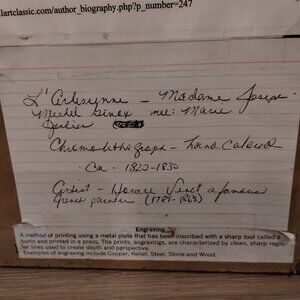 lartclassic.com/author_biography.php?p_number=247
L'Arlesienne - Madame Joseph
Michel Ginoux née: Marie
Chromolithograph - hand colored
Ca. 1820-1830
Artist - Horace Vernet a famous
French painter (1789-1863)
Engraving
A method of printing using a metal plate that has been inscribed with a sharp tool called a
burin and printed in a press. The prints, engravings, are characterized by clean, sharp regu-
lar lines used to create depth and perspective.
Examples of engraving include Copper, Relief, Steel, Stone and Wood.